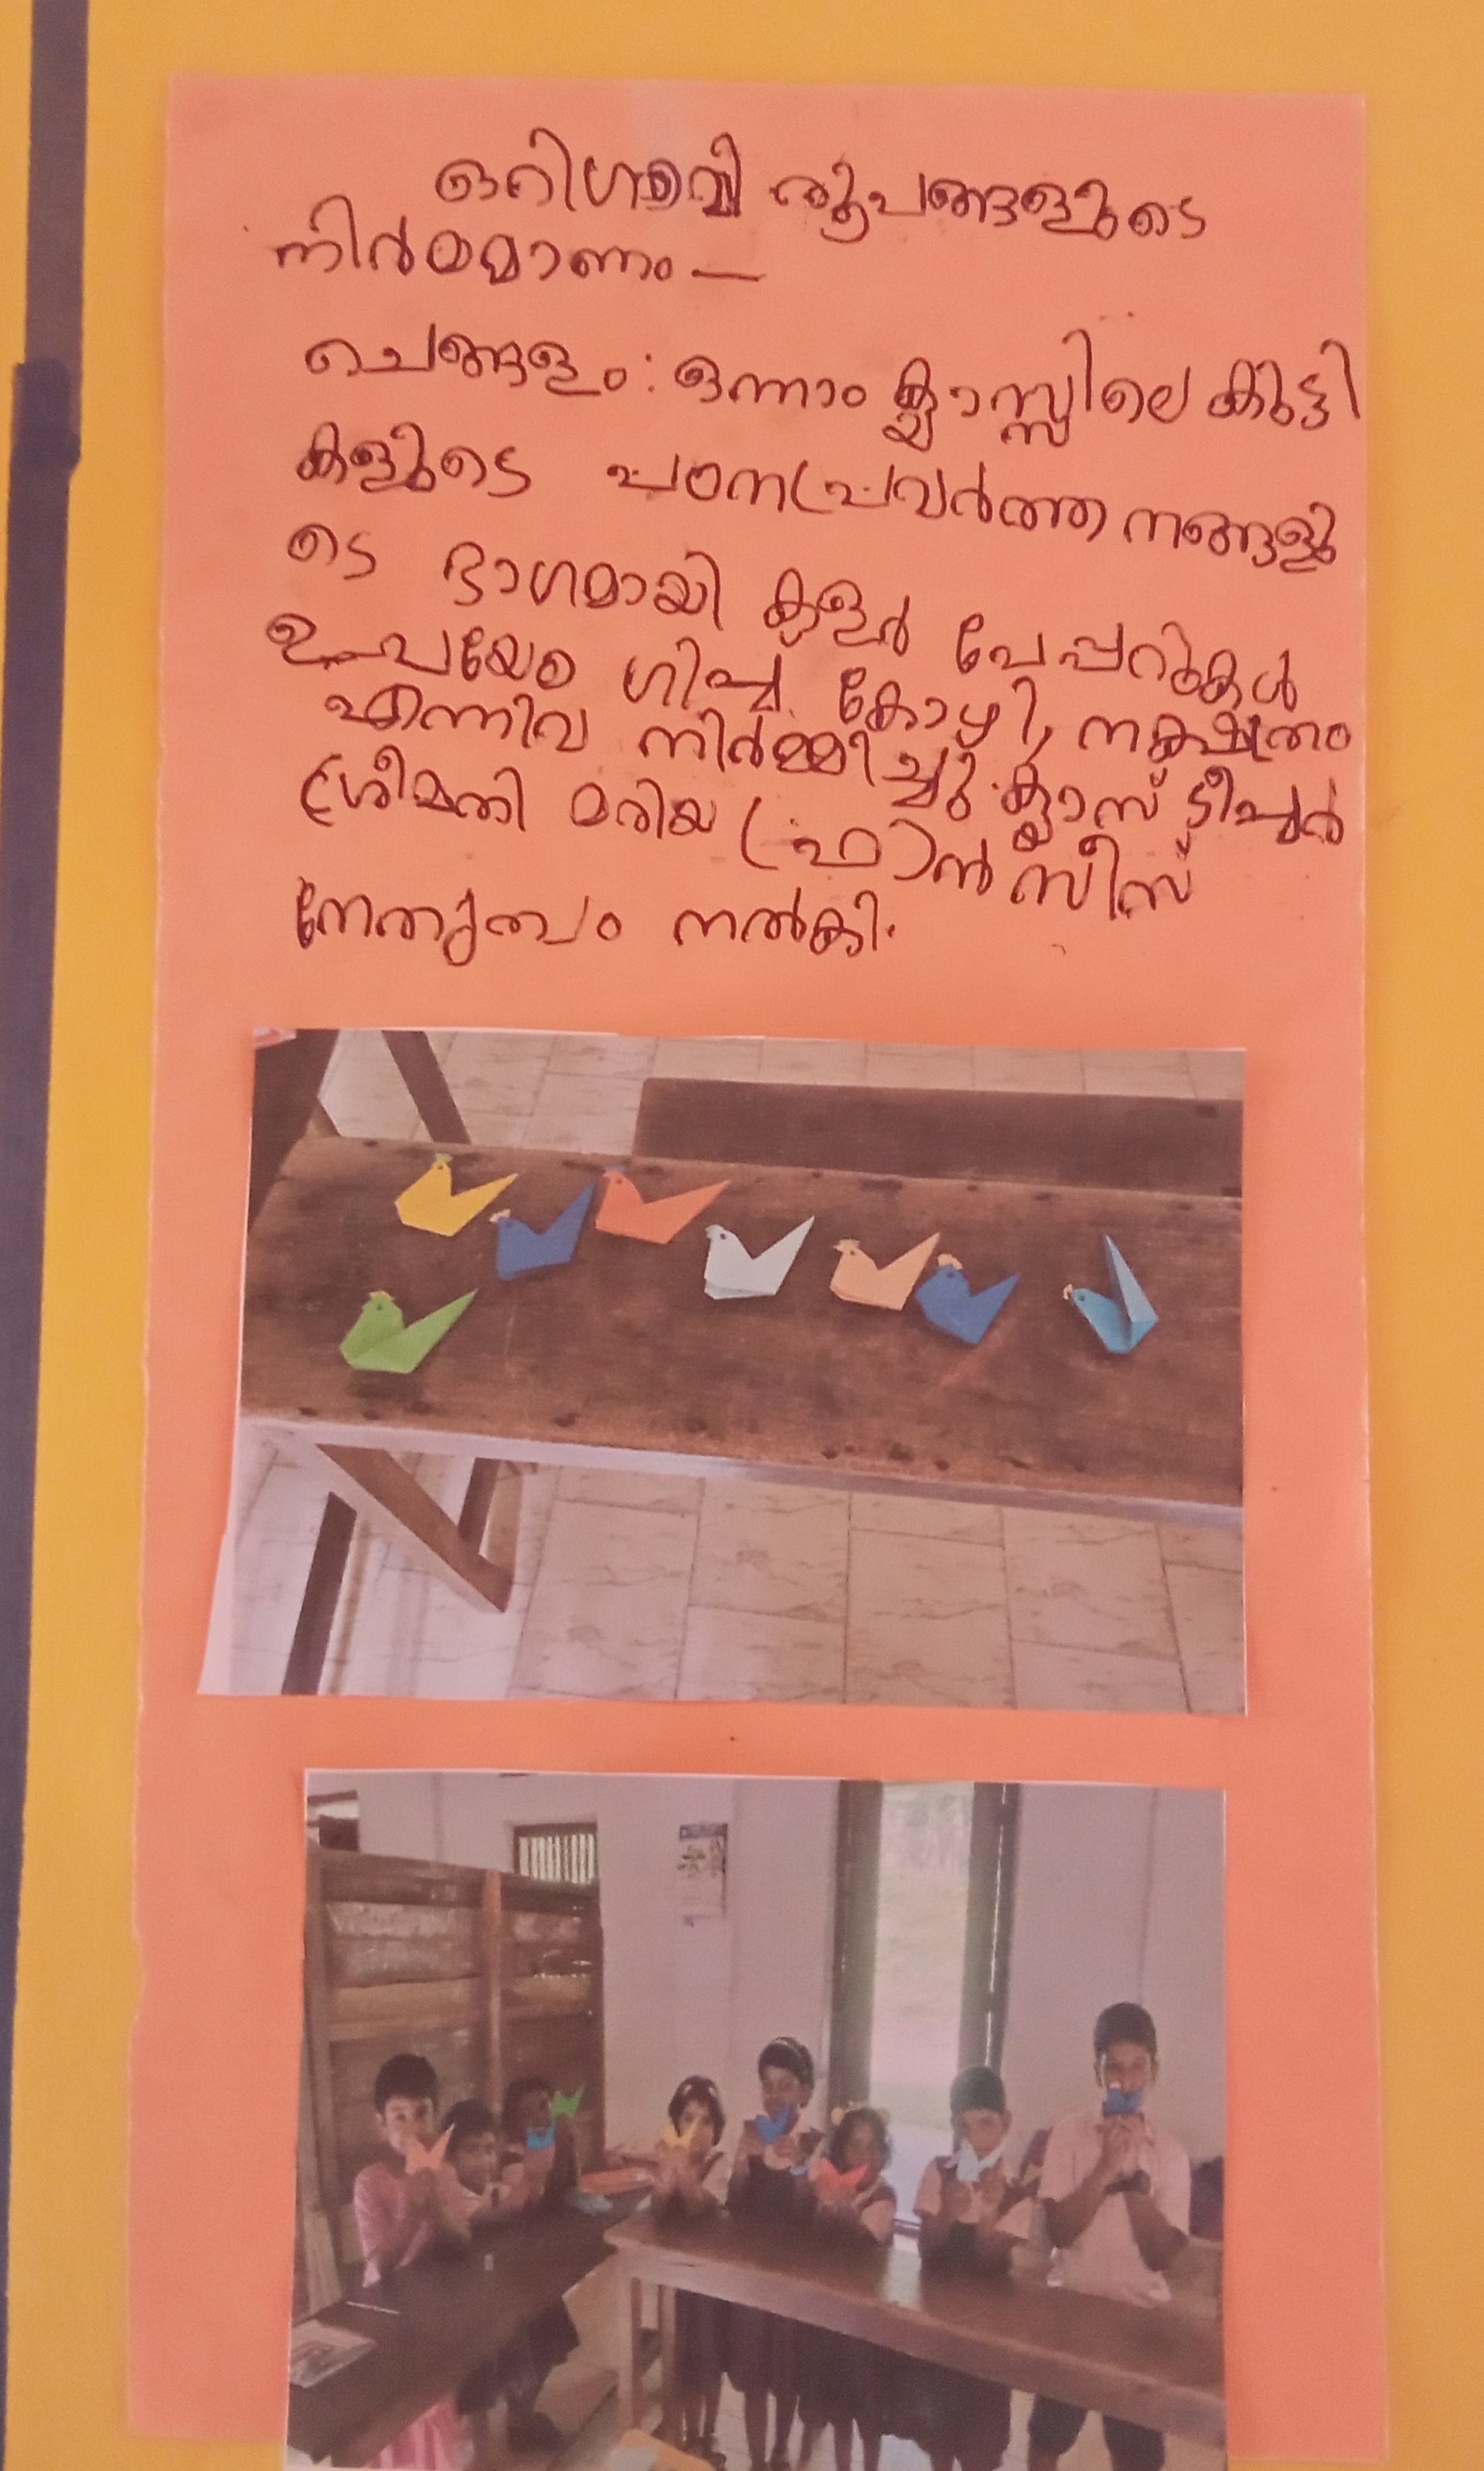 ഒറിഗാമി രൂപങ്ങളുടെ
നിർമ്മാണം —
ചെങ്ങളം : ഒന്നാം ക്ലാസ്സിലെ കുട്ടി
കളുടെ പഠനപ്രവർത്തനങ്ങളു
ടെ ഭാഗമായി കളർ പേപ്പറുകൾ
ഉപയോഗിച്ച് കോഴി, നക്ഷത്രം
എന്നിവ നിർമ്മിച്ചു. ക്ലാസ് ടീച്ചർ
ശ്രീമതി മരിയ ഫ്രാൻസീസ്
നേതൃത്വം നൽകി.